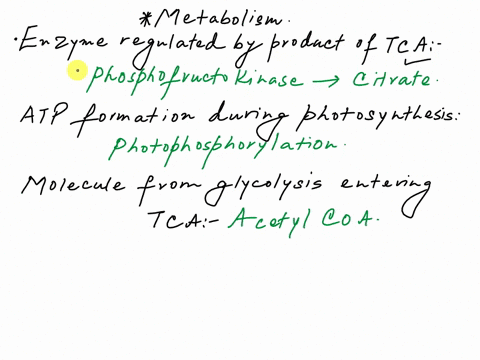 *Metabolism.
·Enzyme regulated by product of TCA:-
·Phosphofructokinase → Citrate.
ATP formation during photosynthesis:
Photophosphorylation.
Molecule from glycolysis entering
TCA:- Acetyl COA.